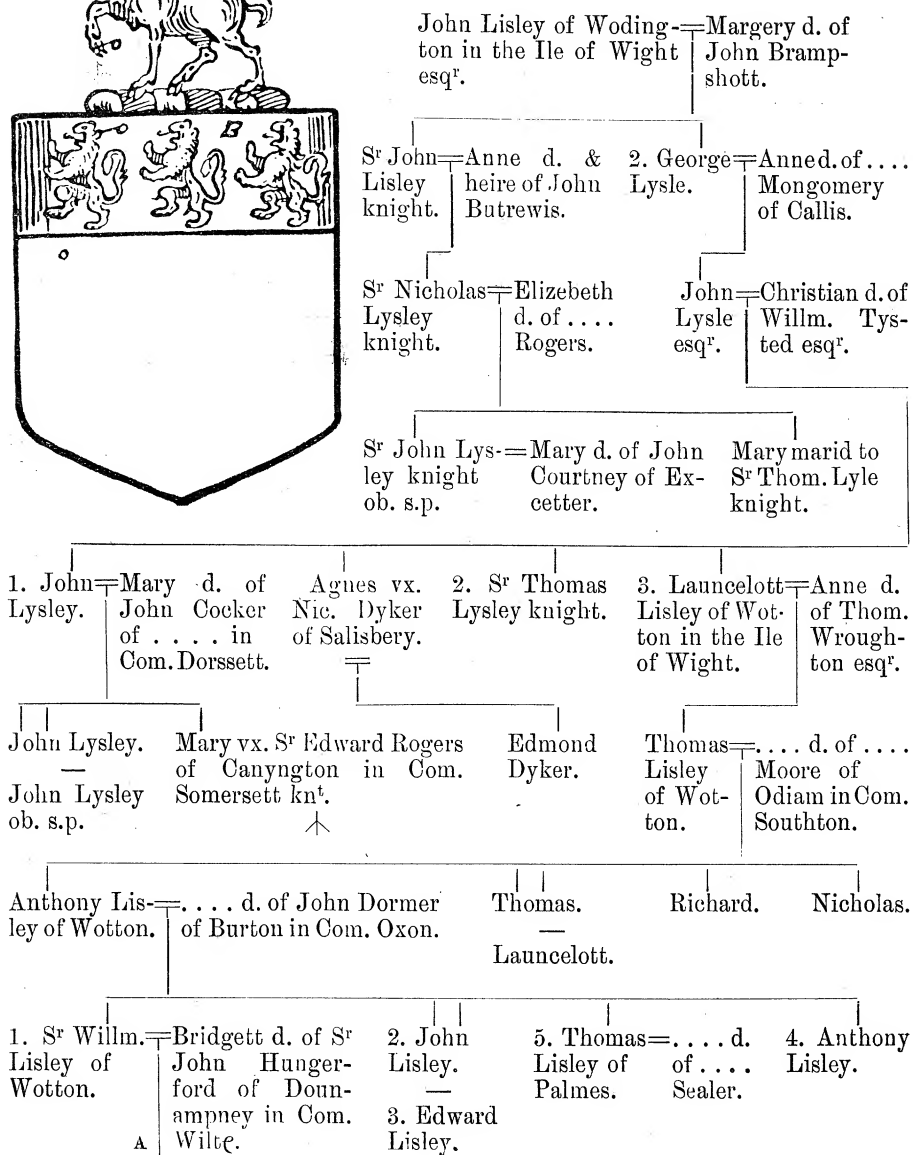 John Lisley of Woding-
ton in the Ile of Wight
esqʳ.
Margery d. of
John Bramp-
shott.
B
o
Sʳ John
Lisley
knight.
Anne d. &
heire of John
Butrewis.
2. George
Lysle.
Anne d. of ....
Mongomery
of Callis.
Sʳ Nicholas
Lysley
knight.
Elizebeth
d. of ....
Rogers.
John
Lysle
esqʳ.
Christian d. of
Willm. Tys-
ted esqʳ.
Sʳ John Lys-
ley knight
ob. s.p.
Mary d. of John
Courtney of Ex-
cetter.
Mary marid to
Sʳ Thom. Lyle
knight.
1. John
Lysley.
Mary d. of
John Cocker
of .... in
Com. Dorssett.
Agnes vx.
Nic. Dyker
of Salisbery.
2. Sʳ Thomas
Lysley knight.
3. Launcelott
Lisley of Wot-
ton in the Ile
of Wight.
Anne d.
of Thom.
Wrough-
ton esqʳ.
John Lysley.
—
John Lysley
ob. s.p.
Mary vx. Sʳ Edward Rogers
of Canyngton in Com.
Somersett knᵗ.
Edmond
Dyker.
Thomas
Lisley
of Wot-
ton.
.... d. of ....
Moore of
Odiam in Com.
Southton.
Anthony Lis-
ley of Wotton.
.... d. of John Dormer
of Burton in Com. Oxon.
Thomas.
—
Launcelott.
Richard.
Nicholas.
1. Sʳ Willm.
Lisley of
Wotton.
Bridgett d. of Sʳ
John Hunger-
ford of Doun-
ampney in Com.
Wilts.
A
2. John
Lisley.
—
3. Edward
Lisley.
5. Thomas
Lisley of
Palmes.
.... d.
of ....
Sealer.
4. Anthony
Lisley.